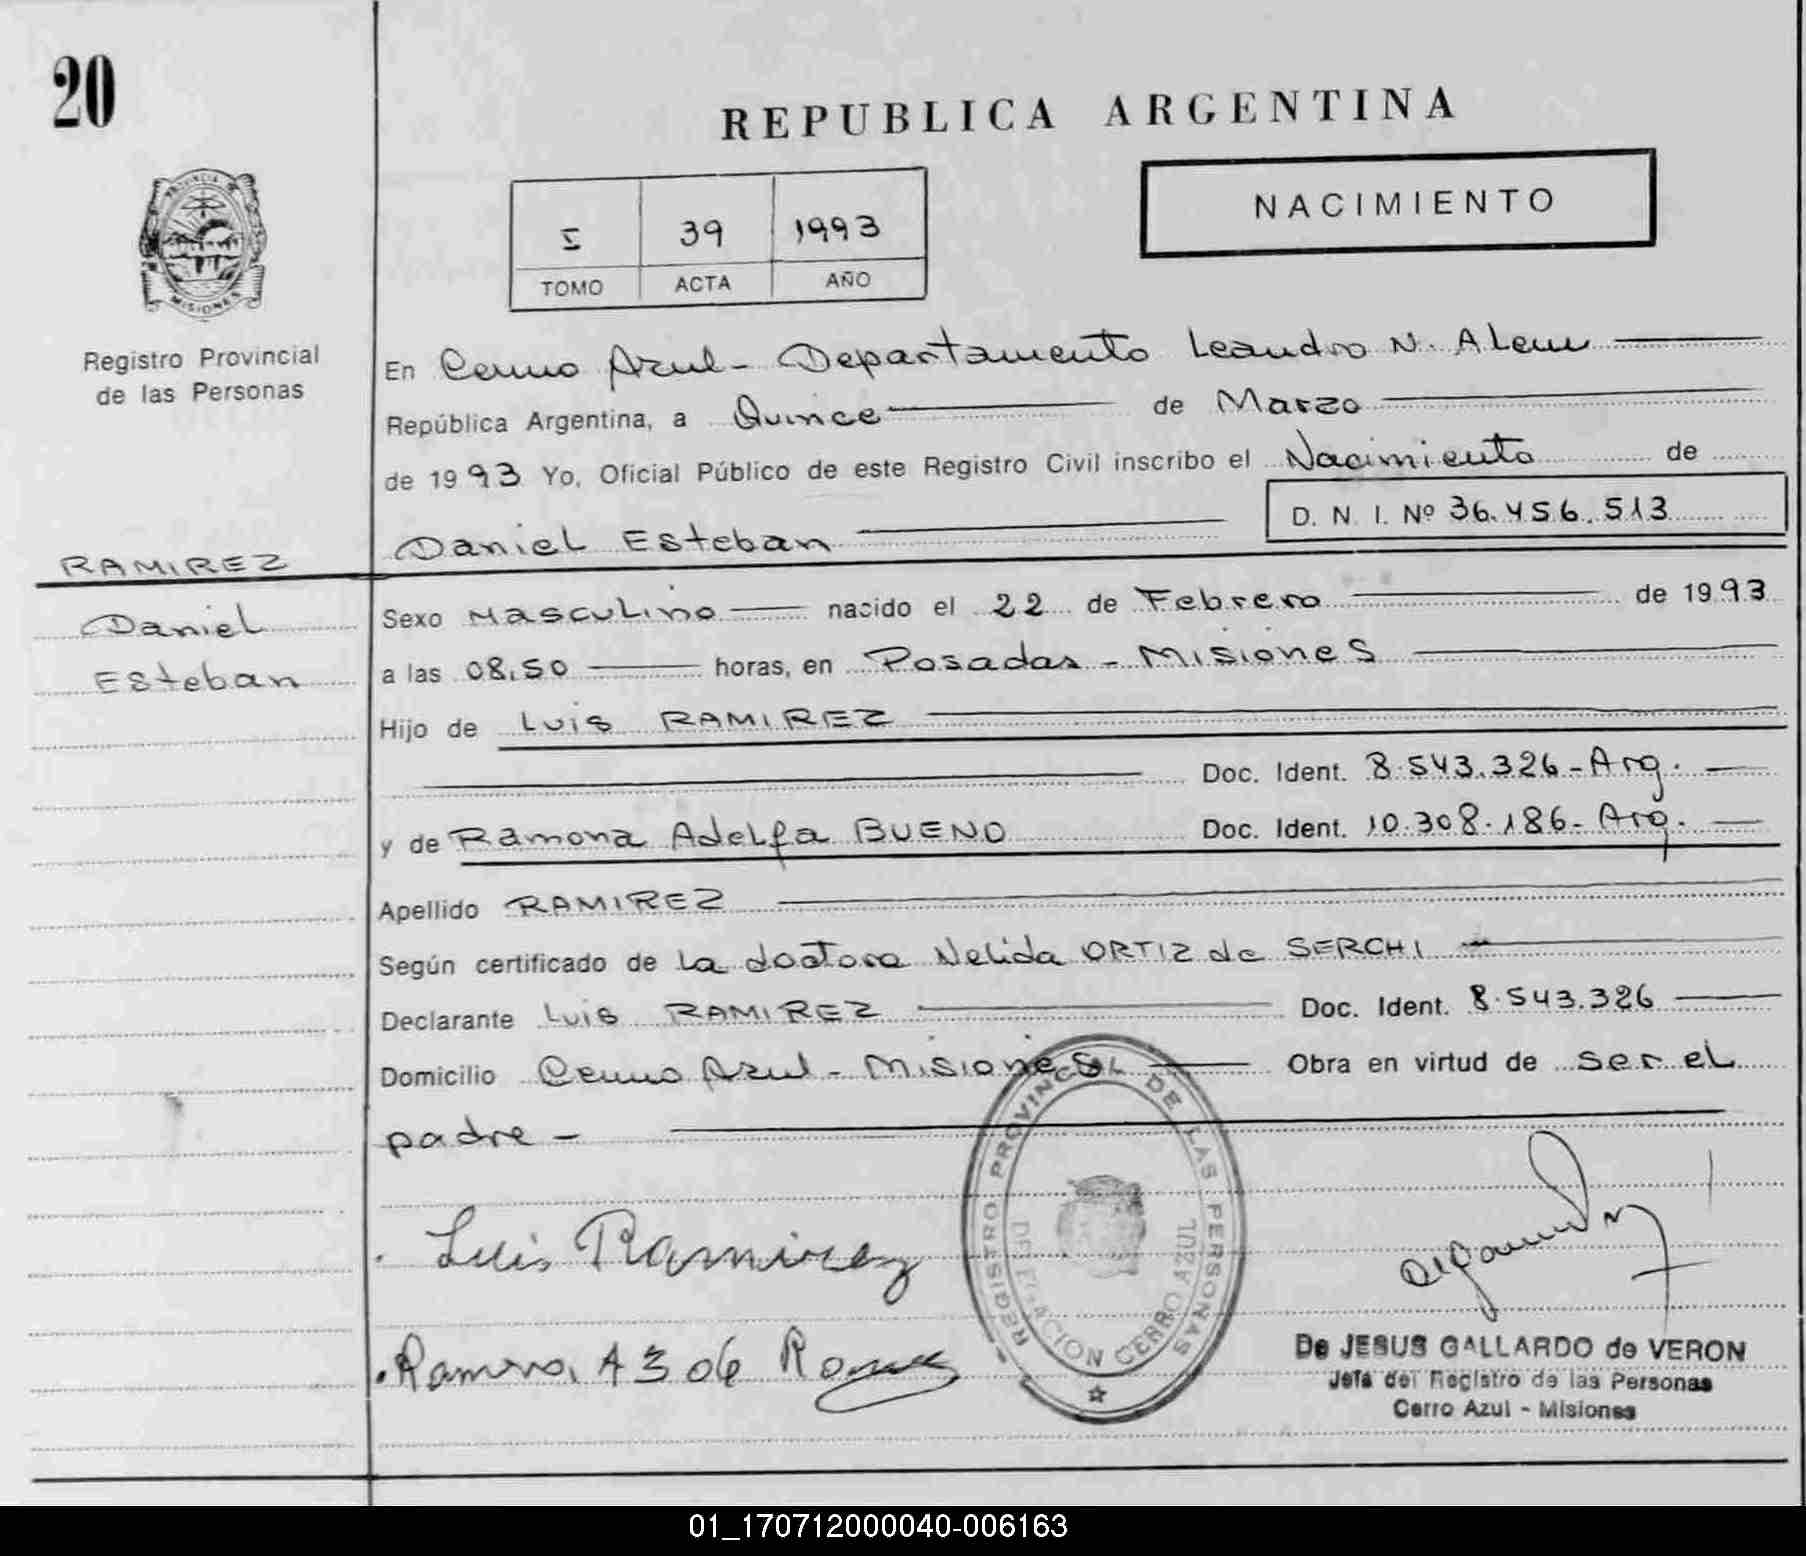 20
REPUBLICA ARGENTINA
NACIMIENTO
I 39 1993
TOMO ACTA AÑO
PROVINCIA DE MISIONES
Registro Provincial
de las Personas
En Cerro Azul - Departamento Leandro N. Alem
República Argentina, a Quince de Marzo
de 1993 Yo, Oficial Público de este Registro Civil inscribo el Nacimiento de
D. N. I. Nº 36.456.513
Daniel Esteban
RAMIREZ
Daniel
Esteban
Sexo Masculino nacido el 22 de Febrero de 1993
a las 08,50 horas, en Posadas - Misiones
Hijo de Luis RAMIREZ
Doc. Ident. 8.543.326 - Arg.
y de Ramona Adelfa BUENO Doc. Ident. 10.308.186 - Arg.
Apellido RAMIREZ
Según certificado de La doctora Nelida ORTIZ de SERCHI
Declarante Luis RAMIREZ Doc. Ident. 8.543.326
Domicilio Cerro Azul - Misiones Obra en virtud de ser el
padre -
Luis Ramirez
REGISTRO PROVINCIAL DE LAS PERSONAS
DELEGACION CERRO AZUL
De JESUS GALLARDO de VERON
Jefa del Registro de las Personas
Cerro Azul - Misiones
01_170712000040-006163